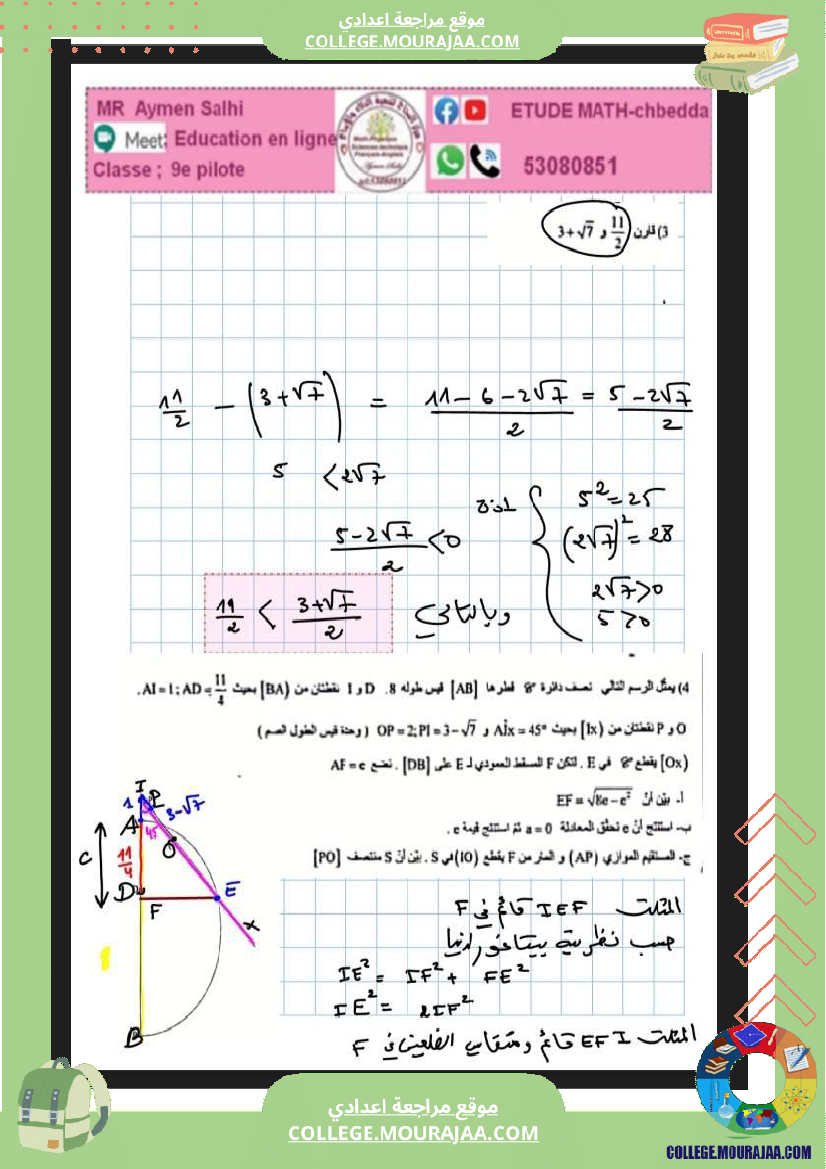 موقع مراجعة اعدادي
COLLEGE.MOURAJAA.COM
MR Aymen Salhi
Meet: Education en ligne
Classe ; 9e pilote
ETUDE MATH-chbedda
53080851
3) قارن 11/2 و 3+√7
11/2 − (3+√7) = (11−6−2√7)/2 = (5−2√7)/2
5 < 2√7
(5−2√7)/2 < 0
اذن
5² = 25
(2√7)² = 28
2√7 > 0
5 > 0
وبالتالي 11/2 < (3+√7)/2
4) يمثل الرسم التالي نصف دائرة 𝒞 قطرها [AB] قيس طوله 8. D و I نقطتان من (BA) بحيث AI = 1 ; AD = 11/4.
O و P نقطتان من [Ix) بحيث AÎx = 45° و OP = 2; PI = 3−√7 ( وحدة قيس الطول الصم )
[Ox) يقطع 𝒞 في E . لتكن F المسقط العمودي لـ E على [DB] . نضع AF = c
أ- بيّن أنّ EF = √(8c − c²)
ب- استنتج أنّ c تحقّق المعادلة a = 0 ثمّ استنتج قيمة c .
ج- المستقيم الموازي (AP) و المار من F يقطع (IO) في S . بيّن أنّ S منتصف [PO]
I
P
1
3-√7
A
45
O
C
11/4
D
F
E
x
B
المثلث IEF قائم في F
حسب نظرية بيتاغور لدينا
IE² = IF² + FE²
IE² = 2IF²
المثلث EFI قائم و متقايس الضلعين في F
موقع مراجعة اعدادي
COLLEGE.MOURAJAA.COM
COLLEGE.MOURAJAA.COM